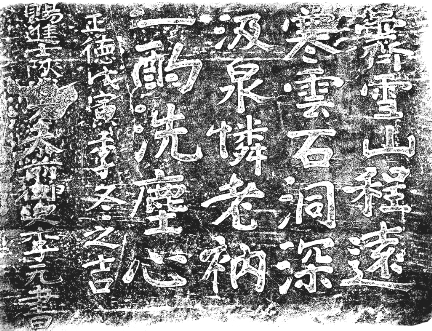 霽雪山程遠
寒雲石洞深
汲泉憐老衲
一酌洗塵心
正德戊寅季冬之吉
賜進士大夫前御史李元書